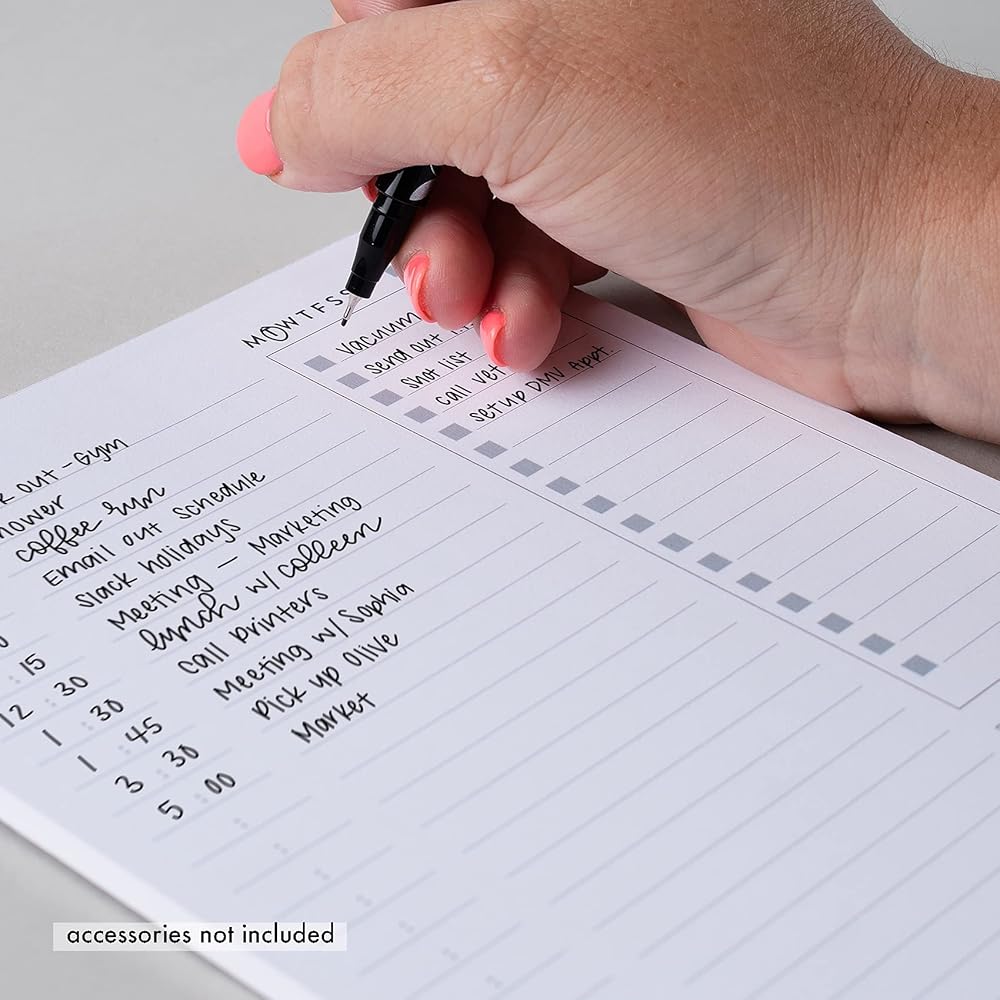 M T W T F S S
vacuum
send out
shot list
call vet
setup DMV Appt.
out - Gym
coffee run
Email out schedule
Slack holidays
:15 Meeting — Marketing
12:30 lunch w/ colleen
1:30 call printers
1:45 Meeting w/ Sophia
3:30 Pick up Olive
5:00 Market
accessories not included